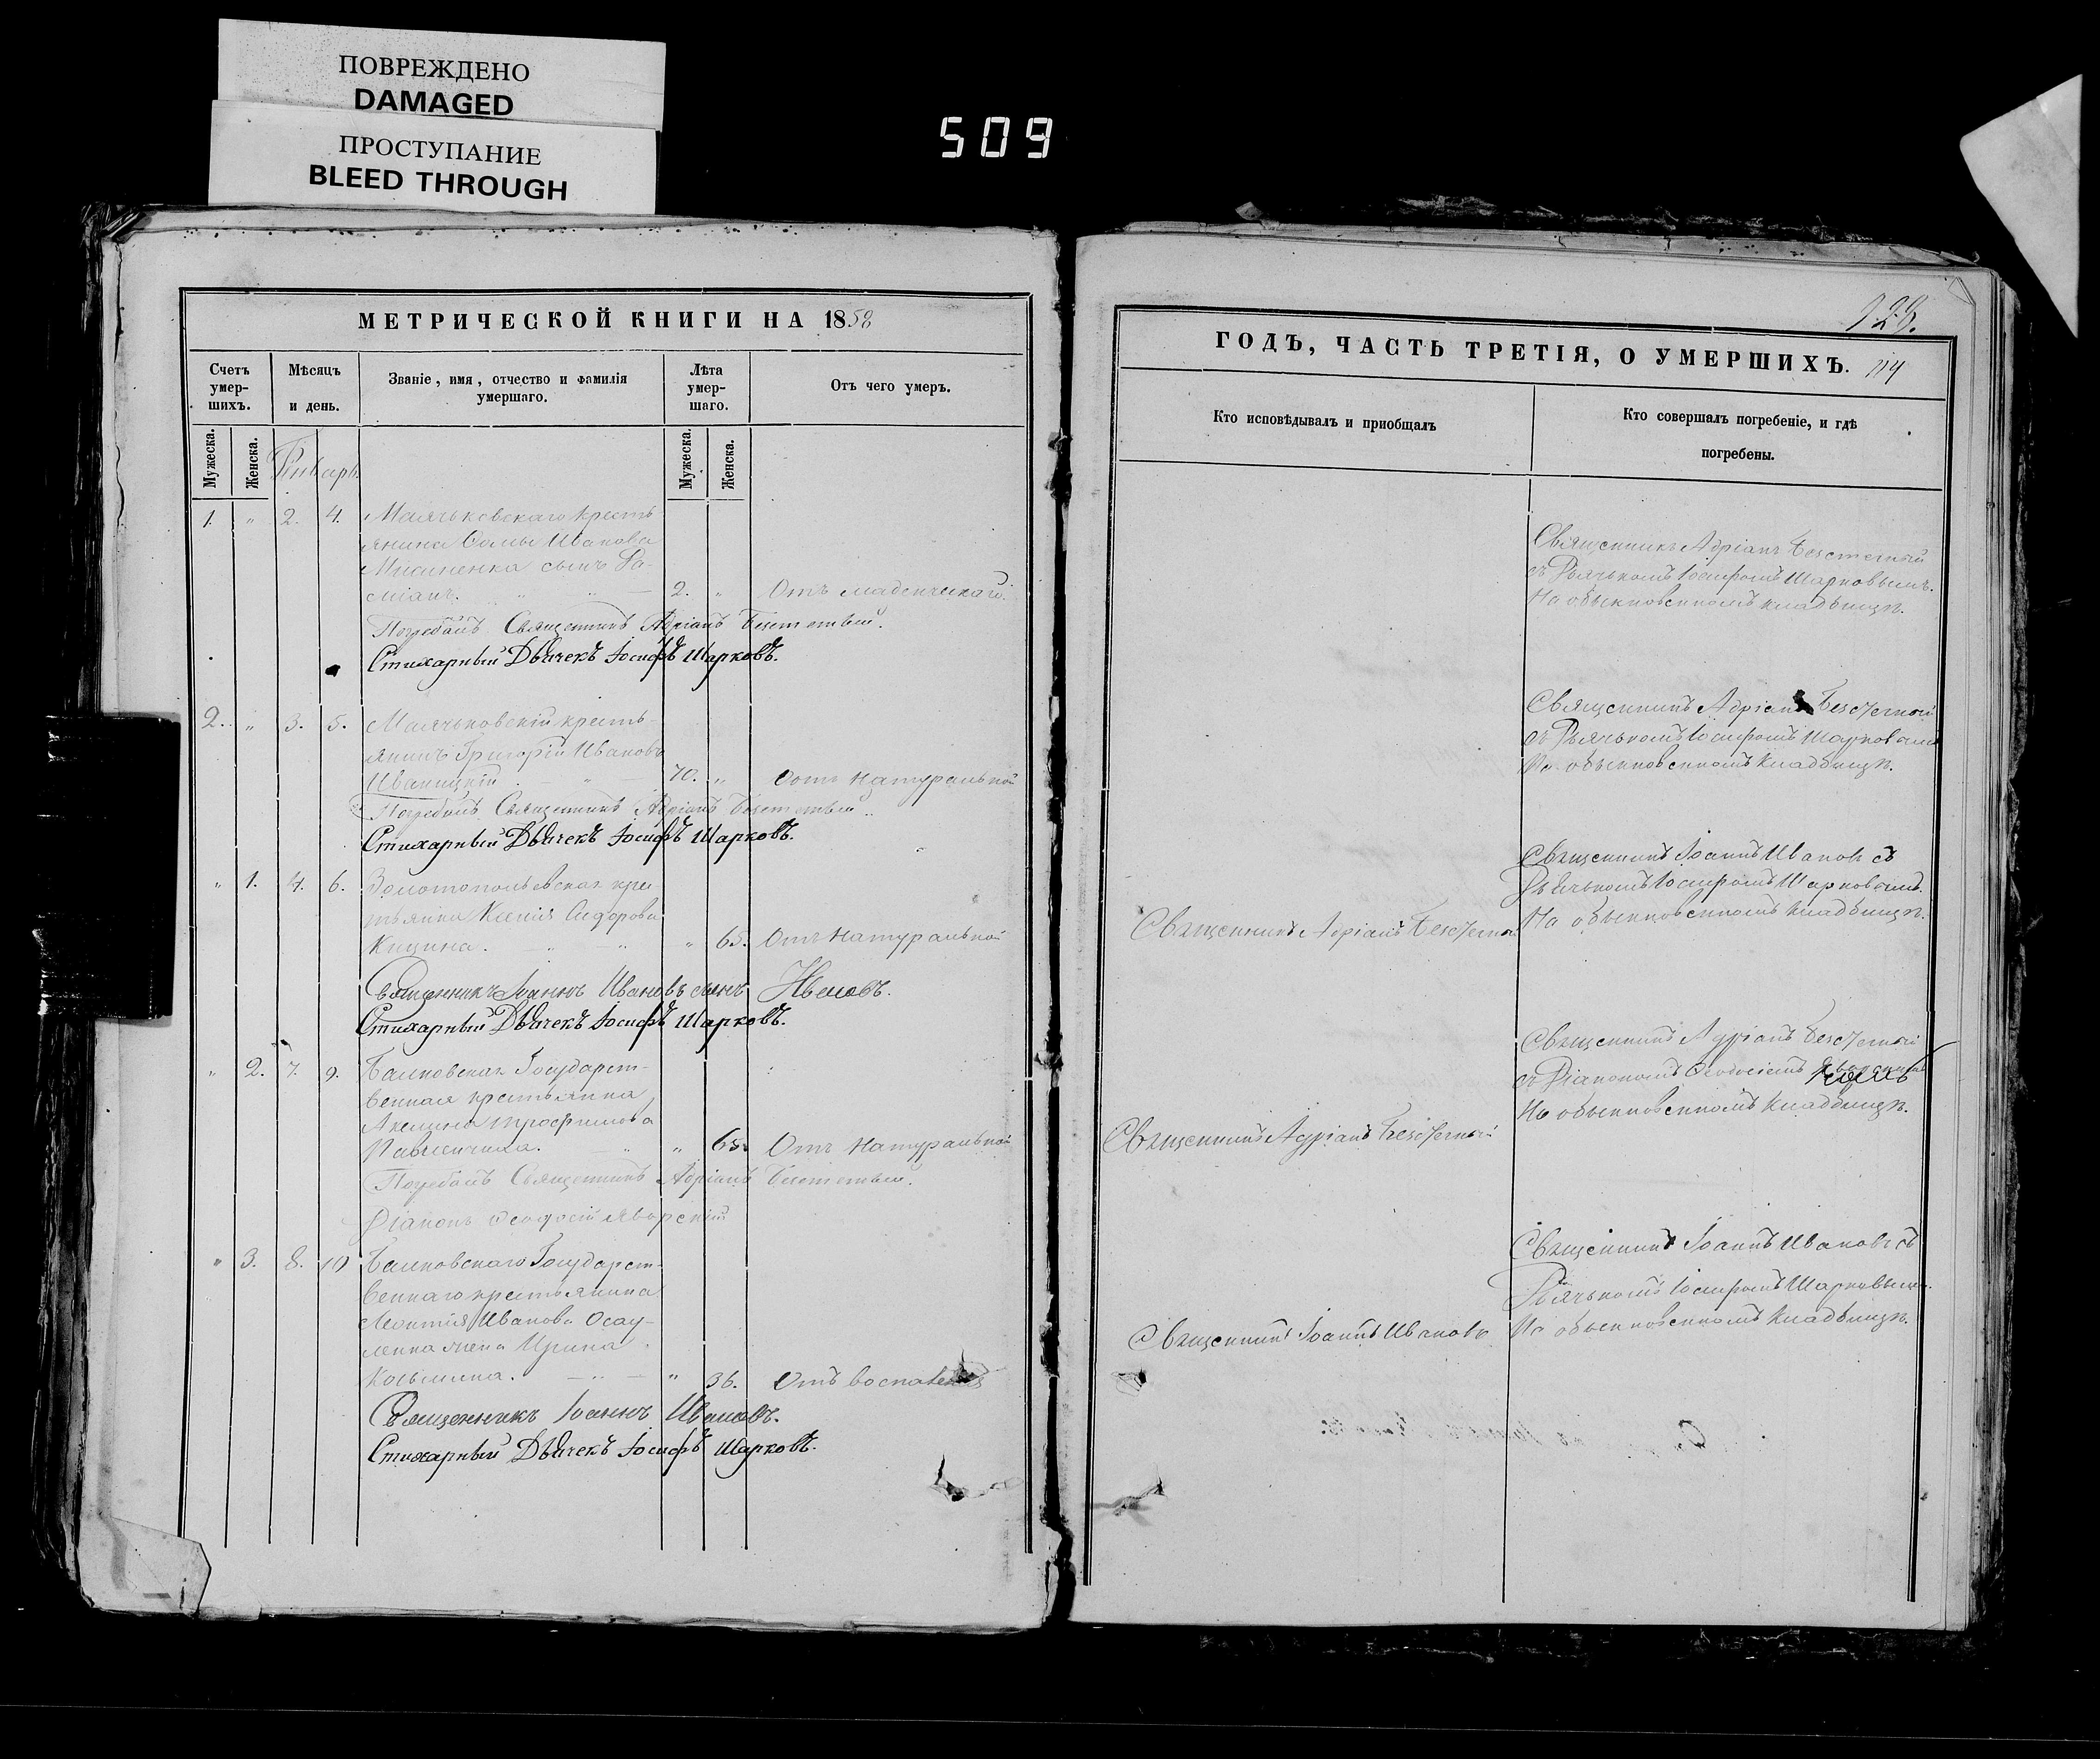 ПОВРЕЖДЕНО
DAMAGED
ПРОСТУПАНИЕ
BLEED THROUGH
509
МЕТРИЧЕСКОЙ КНИГИ НА 1858
Счетъ умер-шихъ.
Мѣсяцъ и день.
Званіе, имя, отчество и фамилія умершаго.
Лѣта умер-шаго.
Отъ чего умеръ.
Мужеска.
Женска.
Январь
Мужеска.
Женска.
1. " 2. 4. Маячьковскаго кресть-
янина Ѳомы Иванова
сынъ Да-
міанъ. 2. " Отъ младенческаго.
Погребалъ Священникъ Адріанъ
Стихарный Дьячекъ Іосифъ Шарковъ.
2. " 3. 5. Маячьковскій кресть-
янинъ Григорій Ивановъ
Иваницкій 70. " Отъ натуральной
Погребалъ Священникъ Адріанъ
Стихарный Дьячекъ Іосифъ Шарковъ.
" 1. 4. 6. крес-
тьянка Ксенія Сидорова
" 65. Отъ натуральной
Священникъ Іоаннъ Ивановъ сынъ Ивановъ.
Стихарный Дьячекъ Іосифъ Шарковъ.
" 2. 7. 9. Государст-
венная крестьянка
Акилина Трофимова
" 65. Отъ натуральной
Погребалъ Священникъ Адріанъ
Діаконъ Ѳеодосій Яворскій
" 3. 8. 10 Государст-
веннаго крестьянина
Леонтія Иванова Осау-
ленка жена Ирина
Козьмина. " 36. Отъ воспаленія
Священникъ Іоаннъ Ивановъ.
Стихарный Дьячекъ Іосифъ Шарковъ.
128.
ГОДЪ, ЧАСТЬ ТРЕТІЯ, О УМЕРШИХЪ. 114
Кто исповѣдывалъ и приобщалъ
Кто совершалъ погребеніе, и гдѣ погребены.
Священникъ Адріанъ
съ Дьячькомъ Іосифомъ Шарковымъ.
На обыкновенномъ кладбищѣ.
Священникъ Адріанъ
съ Дьячькомъ Іосифомъ Шарковымъ
На обыкновенномъ кладбищѣ.
Священникъ Іоаннъ Ивановъ съ
Дьячькомъ Іосифомъ Шарковымъ.
Священникъ Адріанъ
На обыкновенномъ кладбищѣ.
Священникъ Адріанъ
съ Діакономъ Ѳеодосіемъ
На обыкновенномъ кладбищѣ.
Священникъ Адріанъ
Священникъ Іоаннъ Ивановъ съ
Дьячькомъ Іосифомъ Шарковымъ.
Священникъ Іоаннъ Ивановъ
На обыкновенномъ кладбищѣ.